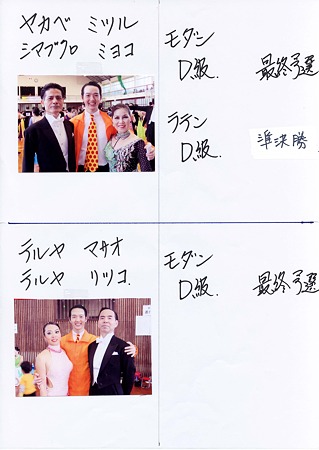 ヤカベ ミツル
シマブクロ ミヨコ
モダン
D級. 最終予選
ラテン
D級. 準決勝
テルヤ マサオ
テルヤ リツコ.
モダン
D級. 最終予選